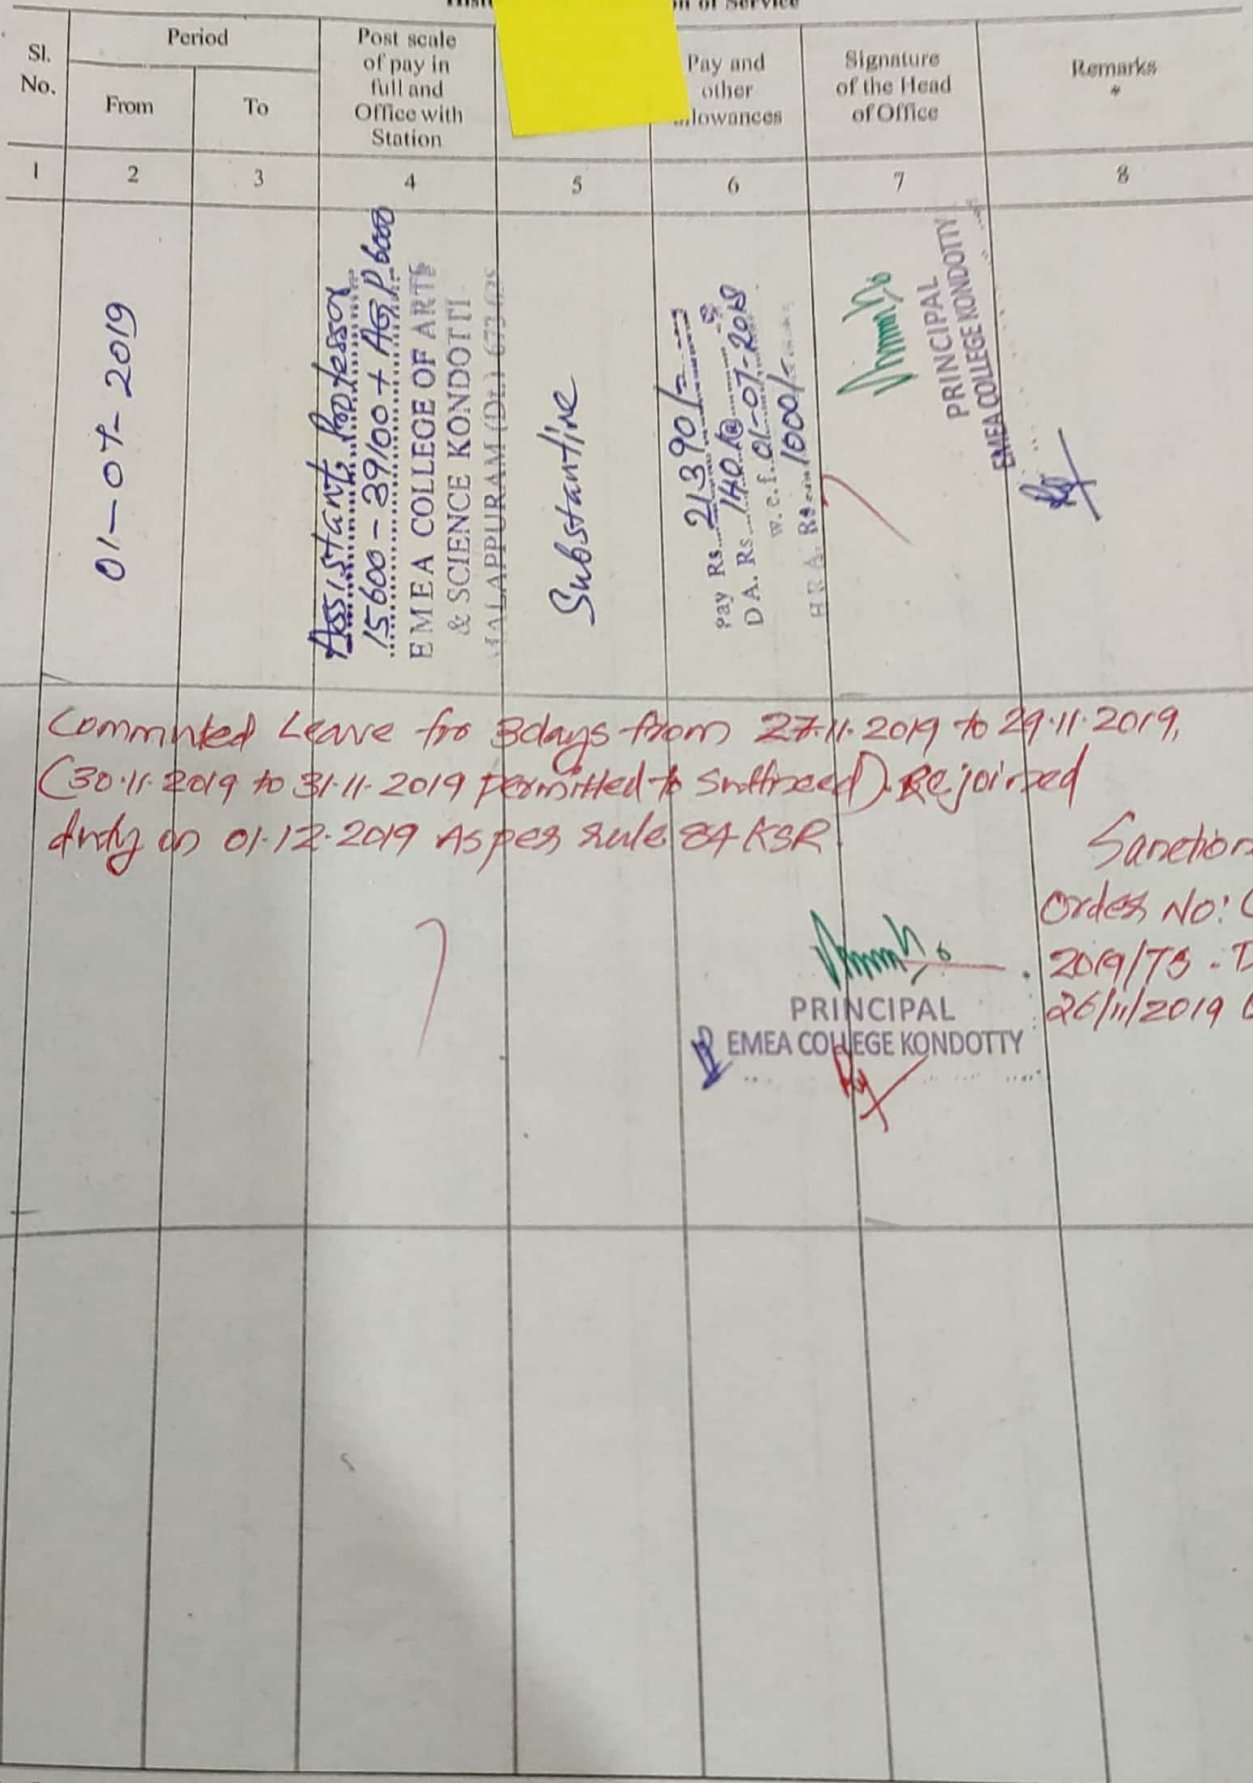 of Service
Sl. No.
Period
From
To
Post scale
of pay in
full and
Office with
Station
Pay and
other
allowances
Signature
of the Head
of Office
Remarks
*
1
2
3
4
5
6
7
8
01-07-2019
Assistant Professor
15600-39100 + AGP 6000
EMEA COLLEGE OF ARTS
& SCIENCE KONDOTTI
MALAPPURAM (Dt.)
Substantive
Pay Rs. 21390/-
DA. Rs. 140%
w.e.f. 01-07-2018
HRA. Rs. 1000/-
PRINCIPAL
EMEA COLLEGE KONDOTTY
Commuted Leave for 3days from 27.11.2019 to 29.11.2019,
(30.11.2019 to 31.11.2019 permitted to Suffixed). Rejoined
duty on 01.12.2019 As per rule 84 KSR
Sanction
Order No:
2019/TS
26/11/2019
PRINCIPAL
EMEA COLLEGE KONDOTTY